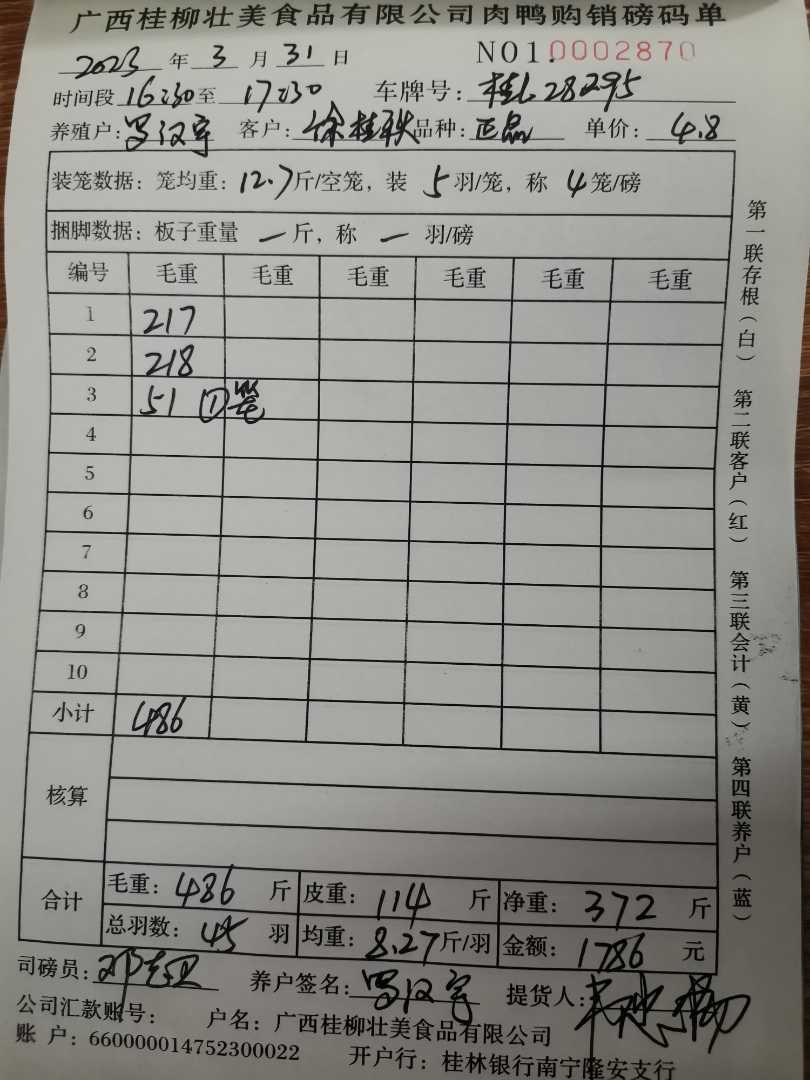 广西桂柳壮美食品有限公司肉鸭购销磅码单
2023 年 3 月 31 日 NO1.0002870
时间段 16:30 至 17:30 车牌号: 28295
养殖户: 罗汉宇 客户: 徐桂 品种: 正品 单价: 4.8
装笼数据: 笼均重: 12.7 斤/空笼, 装 5 羽/笼, 称 4 笼/磅
捆脚数据: 板子重量 一 斤, 称 一 羽/磅
编号 毛重 毛重 毛重 毛重 毛重 毛重
1 217
2 218
3 51 ①笼
4
5
6
7
8
9
10
小计 486
核算
合计 毛重: 486 斤 皮重: 114 斤 净重: 372 斤
总羽数: 45 羽 均重: 8.27 斤/羽 金额: 1786 元
司磅员: 邓 养户签名: 罗汉宇 提货人:
公司汇款账号: 户名: 广西桂柳壮美食品有限公司
账 户: 660000014752300022 开户行: 桂林银行南宁隆安支行
第一联存根(白) 第二联客户(红) 第三联会计(黄) 第四联养户(蓝)